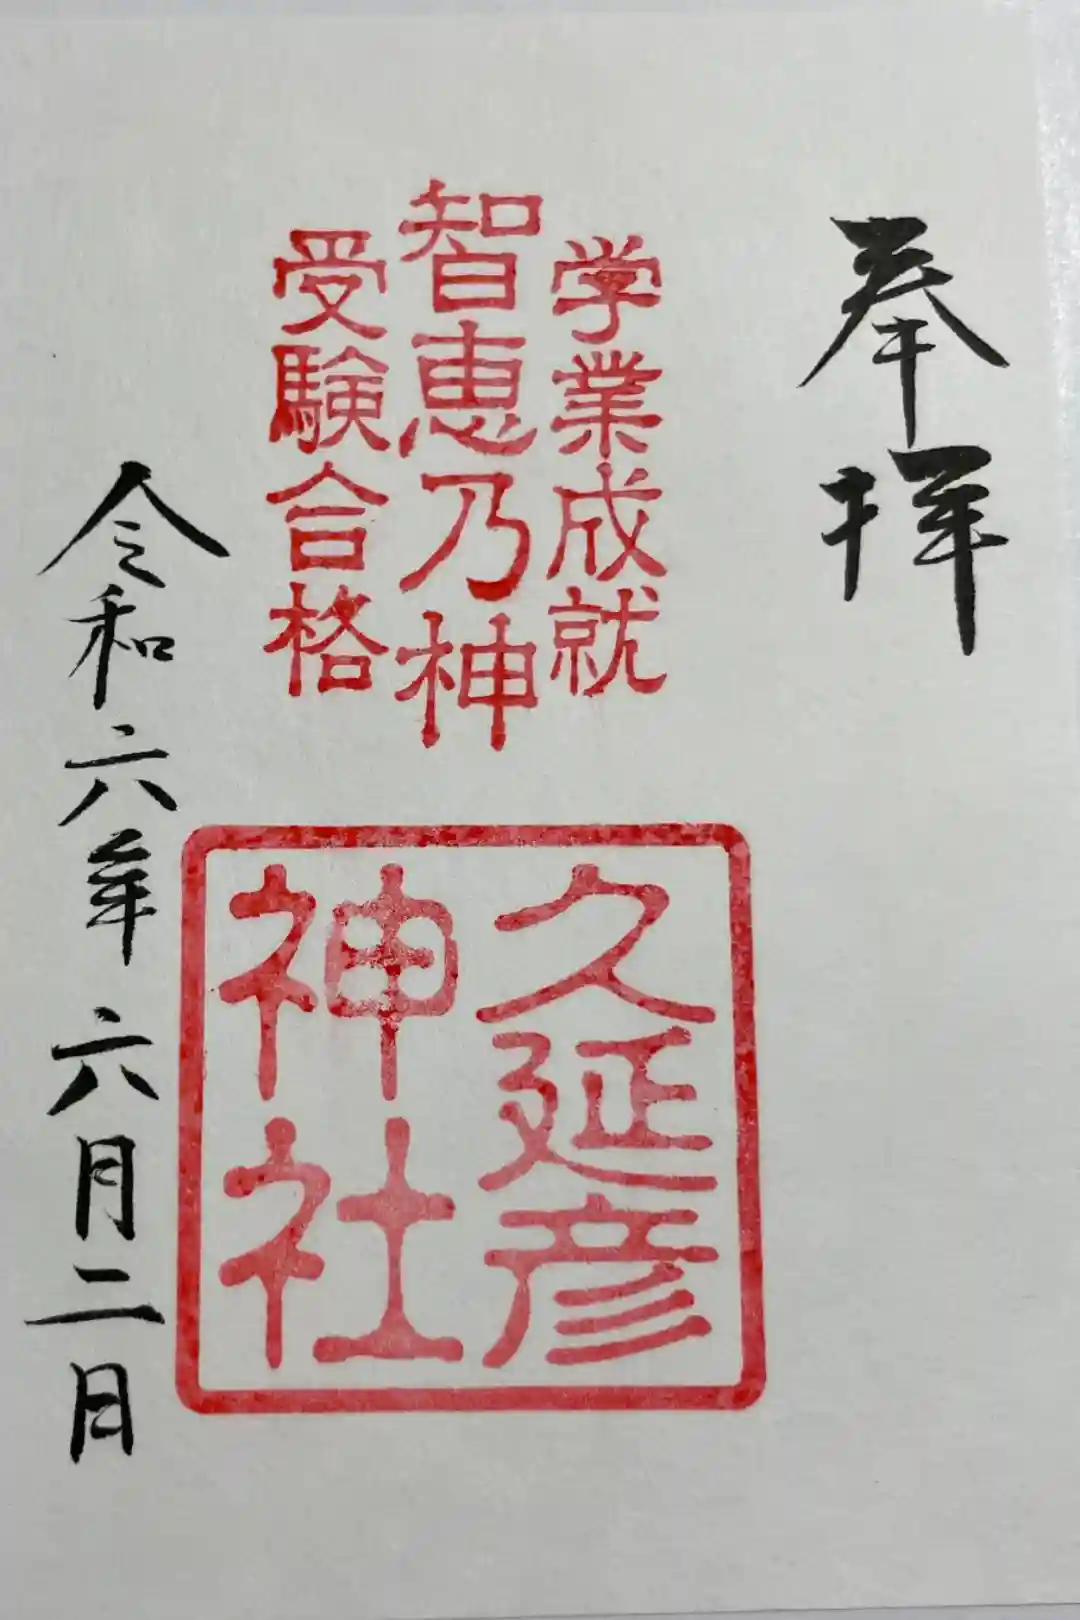 奉拝
学業成就
智恵乃神
受験合格
久延彦
神社
令和六年六月二日